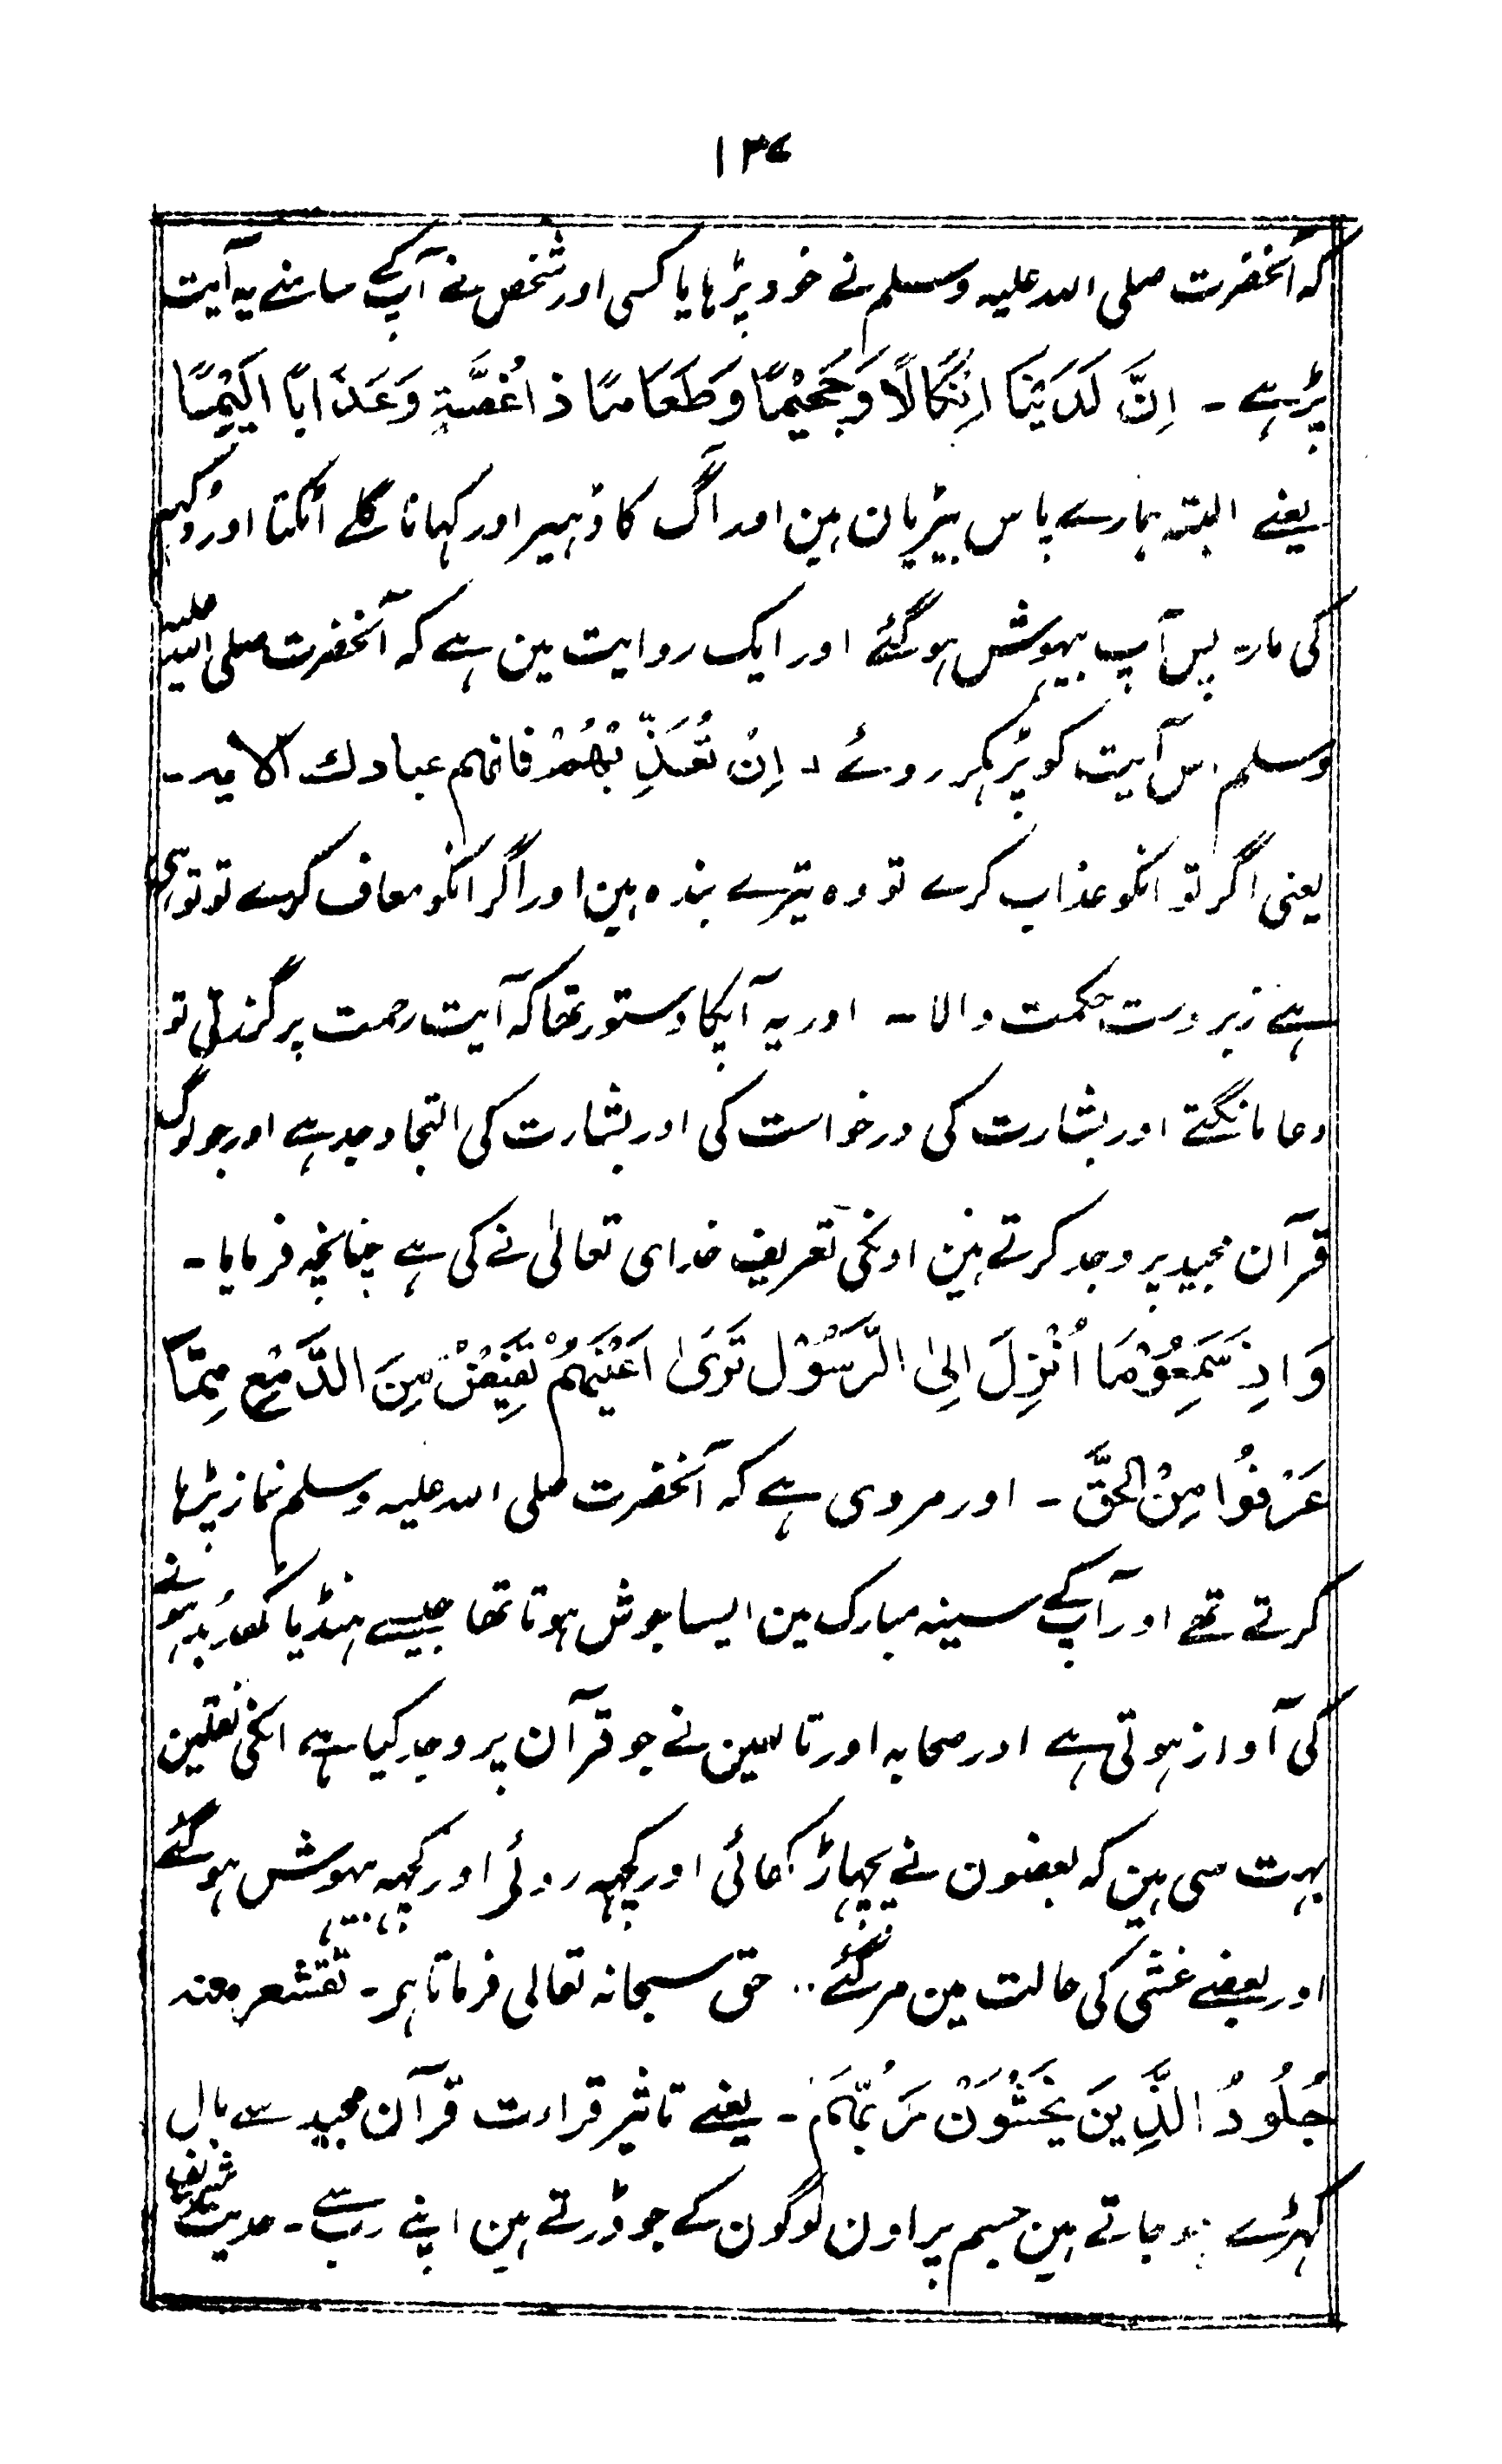 ۱۳۷
کہ آنحضرت صلی اللہ علیہ وسلم نے خود پڑہا یا کسی اور شخص نے آپکے سامنے یہ آیت
پڑہے ۔ اِنَّ لَدَیْنَا اَنْکَالًا وَجَحِیْمًا وَطَعَامًا ذَا غُصَّۃٍ وَعَذَابًا اَلِیْمًا
یعنے البتہ ہمارے پاس بیڑیان ہین اور آگ کا ڈہیر اور کہانا گلے اٹکتا اور دکہہ
کی مار ۔ پس آپ بیہوش ہوگئے اور ایک روایت مین ہے کہ آنحضرت صلی اللہ علیہ
وسلم اس آیت کو پڑہکر روئے ۔ اِنْ تُعَذِّبْهُمْ فانہم عبادك الآیہ ۔
یعنی اگر تو انکو عذاب کرے تو وہ تیرے بندہ ہین اور اگر انکو معاف کرے تو توہی
ہے زبردست حکمت والا ۔ اور یہ آپکا دستور تھا کہ آیت رحمت پر گذرتی تو
دعا مانگتے اور بشارت کی درخواست کی اور بشارت کی التجا وجد ہے اور جو لوگ
قرآن مجید پر وجد کرتے ہین اونکی تعریف خدای تعالیٰ نے کی ہے چنانچہ فرمایا ۔
وَاِذَ سَمِعُوْمَا اُنْزِلَ اِلیٰ الرَّسُوْل تَرَیٰ اَعْیُنَهُمْ تَفِیْضُ مِنَ الدَّمْعِ مِمَّا
عَرَفُوْا مِنْ الحَقَّ ۔ اور مروی ہے کہ آنحضرت صلی اللہ علیہ وسلم نماز پڑہا
کرتے تھے اور آپکے سینہ مبارک مین ایسا جوش ہوتا تھا جیسے ہنڈیا کھدبد ہونے
کی آواز ہوتی ہے اور صحابہ اور تابعین نے جو قرآن پر وجد کیا ہے انکی نقلین
بہت سی ہین کہ بعضون نے پچہاڑ کھائی اور کچہہ روئے اور کچہہ بیہوش ہوگئے
اور بعضے غشی کی حالت مین مرگئے ۔ حق سبحانہ تعالی فرماتا ہر ۔ تقشعر منه
جُلُودُ الَّذِینَ یَخْشَوْنَ رَبَّهَمْ ۔ یعنے تاثیر قراءت قرآن مجید سے بال
کہڑے ہوجاتے ہین جسم پر اون لوگون کے جو ڈرتے ہین اپنے رب سے ۔ حدیث شریف